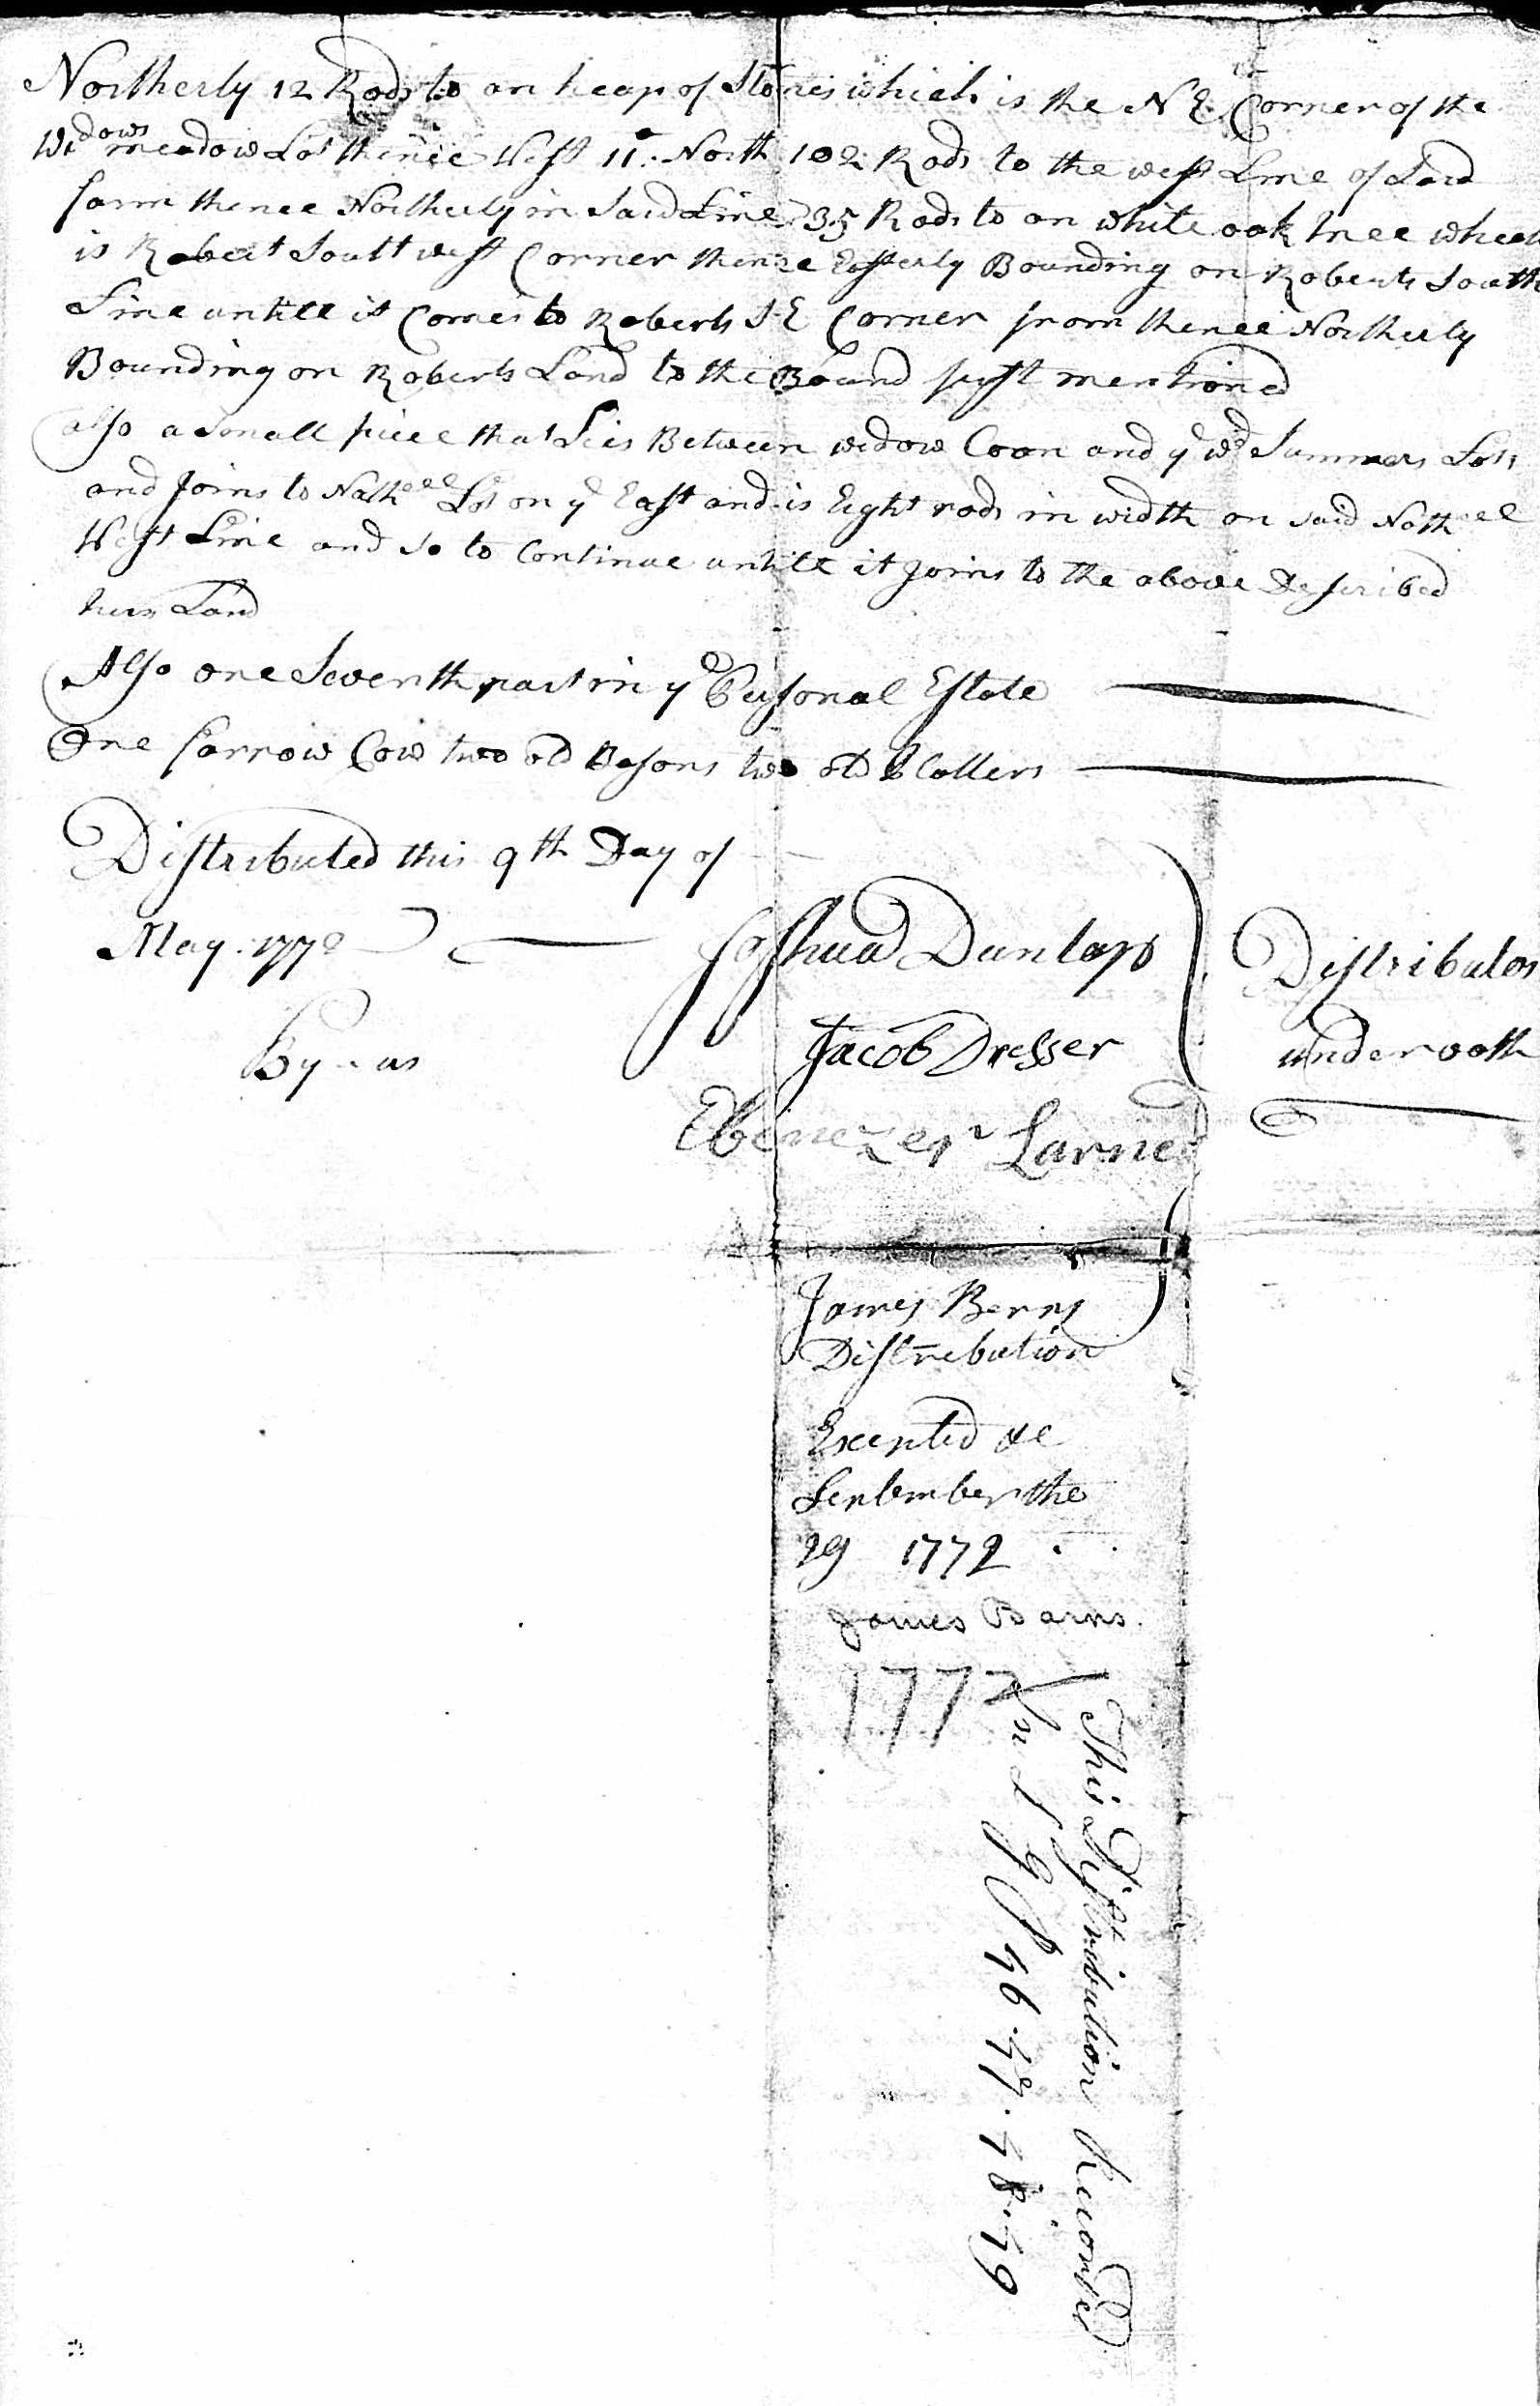 Northerly 12 Rods to an heap of Stones which is the N E Corner of the
Widows meadow Lot thence West 11° North 102 Rods to the west Line of Said
farm thence Northerly in Said Line 35 Rods to an white oak tree which
is Robert Soutt west Corner thence Easterly Bounding on Roberts South
Line untill it Comes to Roberts S E Corner from thence Northerly
Bounding on Roberts Land to the Bound first mentioned
also a Small piece that Lies Between widow Coon and ye wd Summers Lots
and Joins to Nathll Lot on ye East and is Eight rods in width on said Nathll
West Line and so to Continue untill it Joins to the above Described
Land
Also one Seventh part in ye Personal Estate
One farrow Cow two old Basons two old Platters
Distributed this 9th Day of
May 1772
By us
Joshua Dunlap
Jacob Dresser
Ebenezer Larned
Distributors
under oath
James Berns
Distrebution
Excepted
September the
29 1772
James Barns.
1772
This Distribution Recorded
46.47.48.49